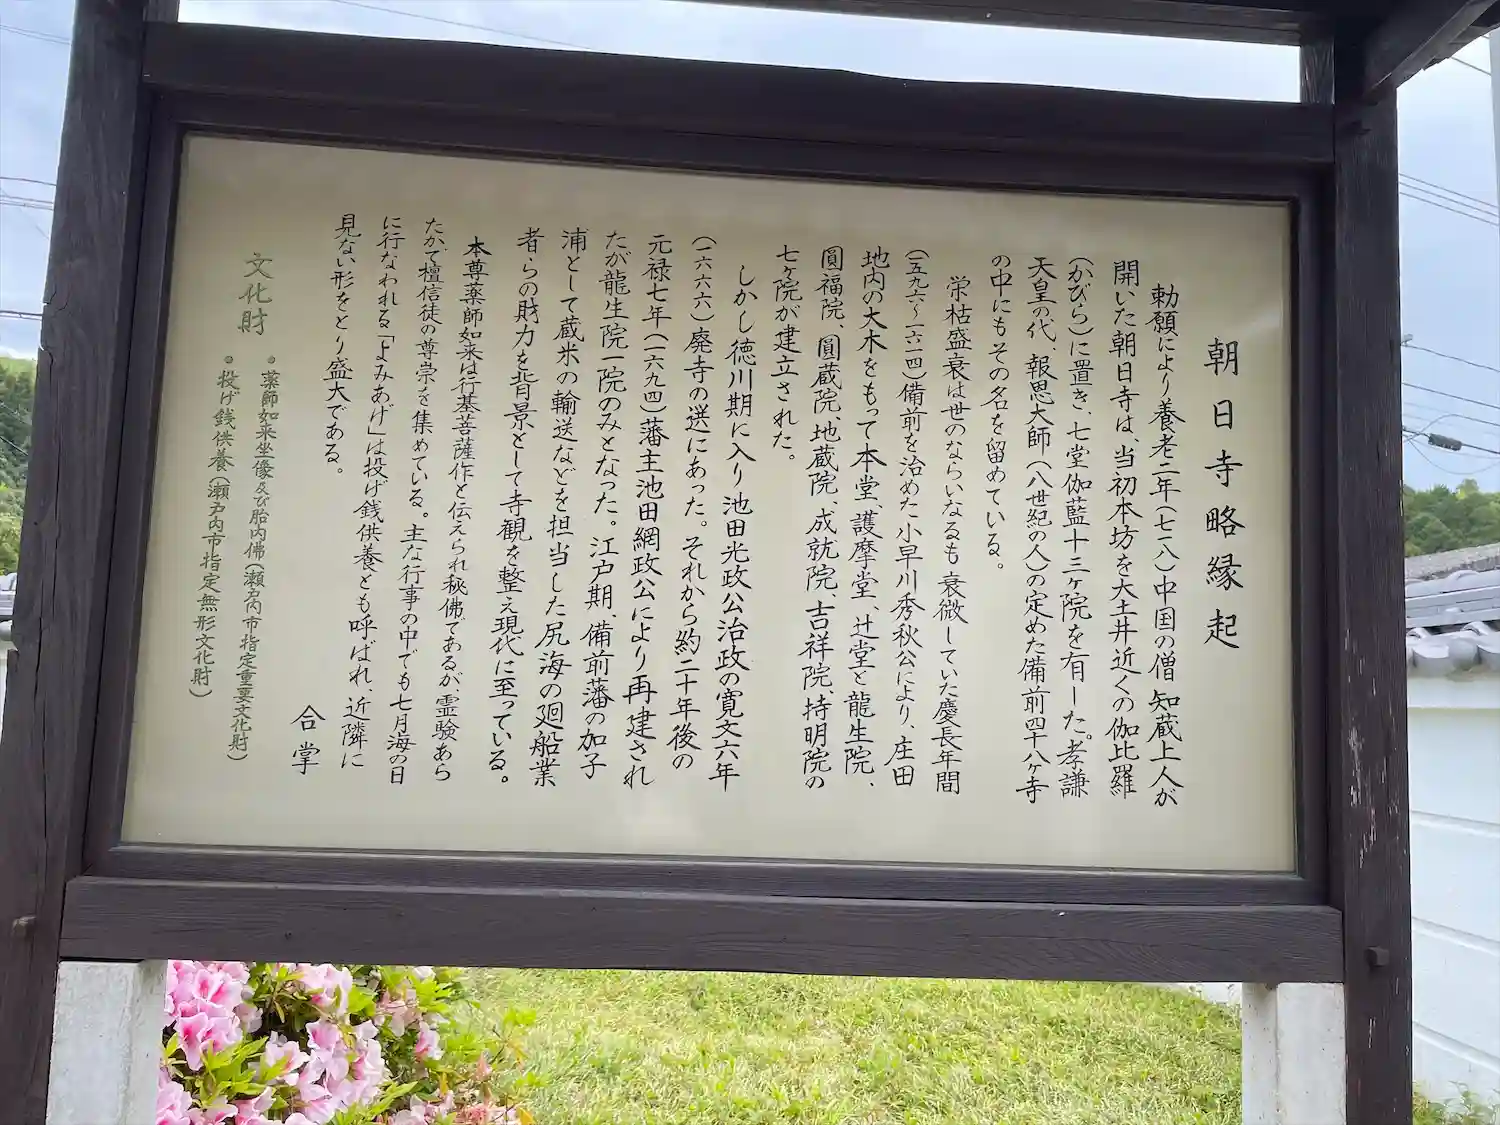 朝日寺略縁起
勅願により養老二年(七一八)中国の僧 知蔵上人が
開いた朝日寺は、当初本坊を大土井近くの伽比羅
(かびら)に置き、七堂伽藍十三ヶ院を有した。孝謙
天皇の代、報恩大師(八世紀の人)の定めた備前四十八ヶ寺
の中にもその名を留めている。
栄枯盛衰は世のならいなるも衰微していた慶長年間
(一五九六〜一六一四)備前を治めた小早川秀秋公により、庄田
地内の大木をもって本堂、護摩堂、辻堂と龍生院、
圓福院、圓蔵院、地蔵院、成就院、吉祥院、持明院の
七ヶ院が建立された。
しかし徳川期に入り池田光政公治政の寛文六年
(一六六六)廃寺の送にあった。それから約二十年後の
元禄七年(一六九四)藩主池田網政公により再建され
たが龍生院一院のみとなった。江戸期、備前藩の加子
浦として蔵米の輸送などを担当した尻海の廻船業
者らの財力を背景として寺観を整え現代に至っている。
本尊薬師如来は行基菩薩作と伝えられ秘佛であるが、霊験あら
たかで檀信徒の尊崇を集めている。主な行事の中でも七月海の日
に行なわれる「よみあげ」は投げ銭供養とも呼ばれ、近隣に
見ない形をとり盛大である。
合掌
文化財
●薬師如来坐像及び胎内佛(瀬戸内市指定重要文化財)
●投げ銭供養(瀬戸内市指定無形文化財)